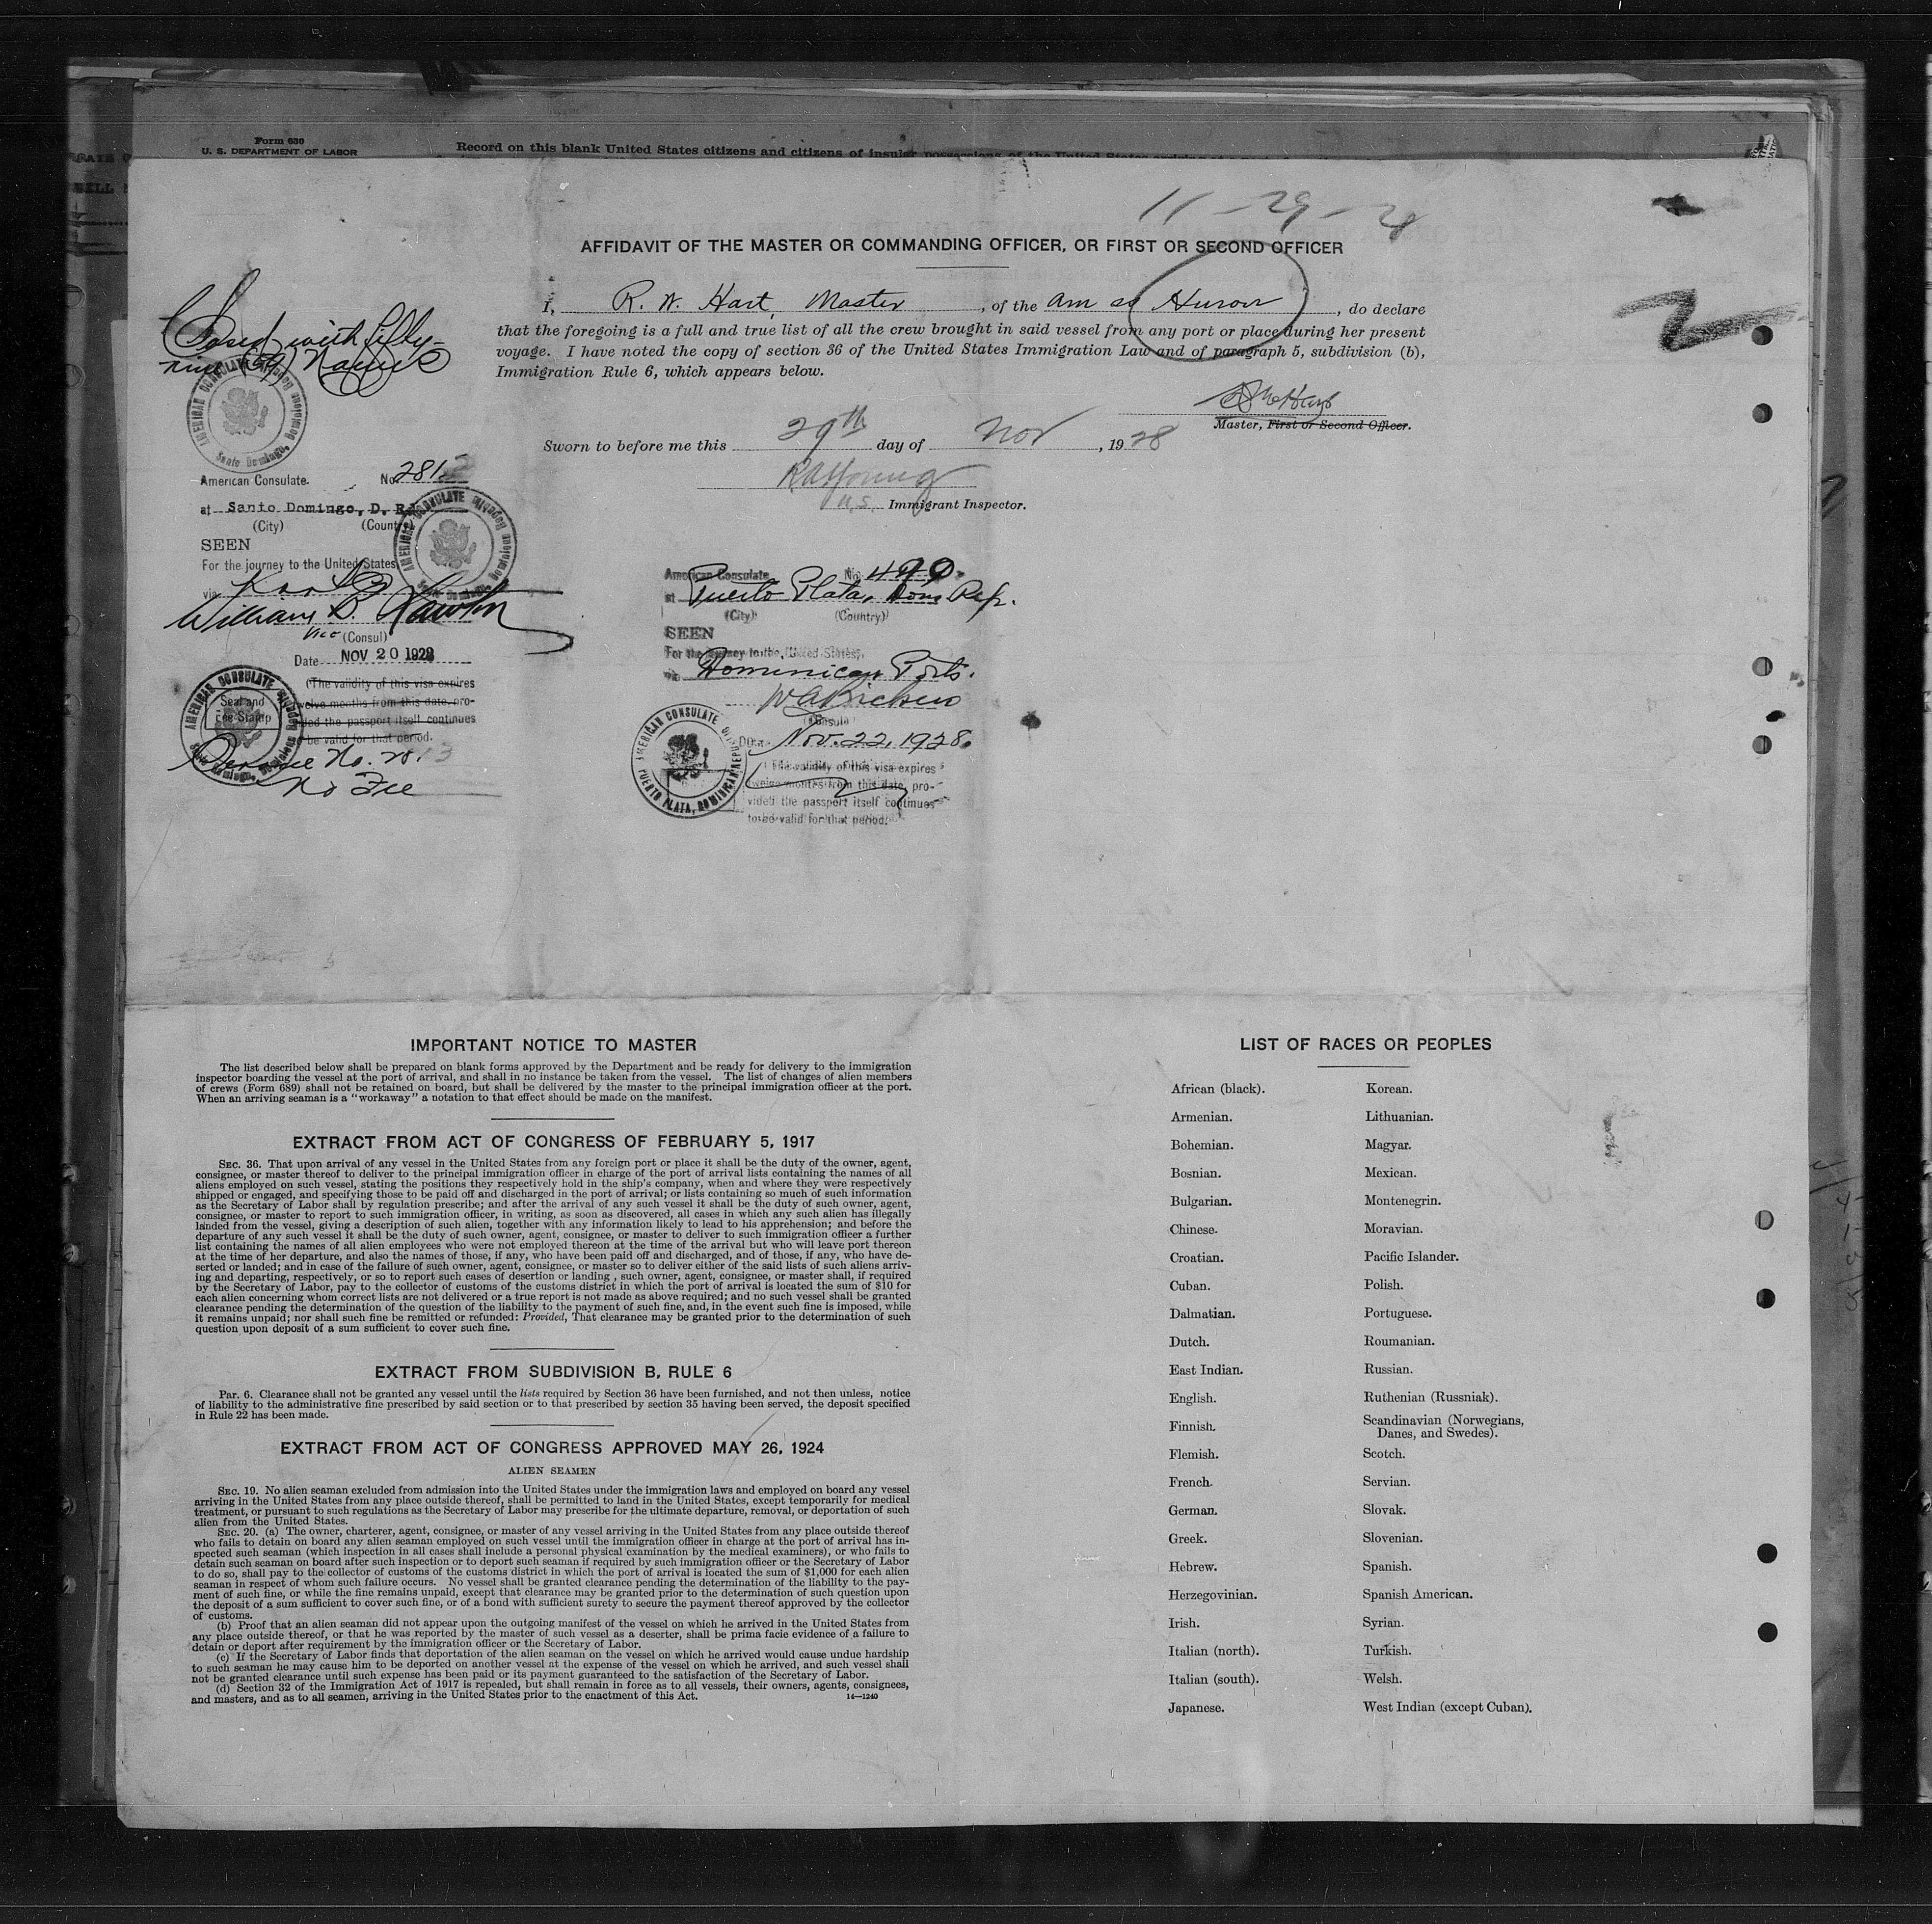 Form 630
U. S. DEPARTMENT OF LABOR
Record on this blank United States citizens and citizens of insular possessions of the United States
11-29-28
2
AFFIDAVIT OF THE MASTER OR COMMANDING OFFICER, OR FIRST OR SECOND OFFICER
I, R. W. Hart, Master, of the Am ss Huron, do declare
that the foregoing is a full and true list of all the crew brought in said vessel from any port or place during her present
voyage. I have noted the copy of section 36 of the United States Immigration Law and of paragraph 5, subdivision (b),
Immigration Rule 6, which appears below.
Master, First or Second Officer.
Sworn to before me this 29th day of Nov, 1928
U.S. Immigrant Inspector.
Closed with fifty-
nine (59) Names
AMERICAN CONSULATE
Santo Domingo, Dominican Republic
American Consulate. No. 281
at Santo Domingo, D. R.
(City) (Country)
SEEN
For the journey to the United States
via
William B. Lawton
Vice (Consul)
Date NOV 20 1928
(The validity of this visa expires
twelve months from this date, pro-
vided the passport itself continues
to be valid for that period.
Seal and
Fee Stamp
Service No.
No Fee
American Consulate No. 490
at Puerto Plata, Dom. Rep.
(City) (Country)
SEEN
For the journey to the United States,
via Dominican Ports.
W A Bickers
(Consul)
Date Nov. 22, 1928.
The validity of this visa expires
twelve months from this date, pro-
vided the passport itself continues
to be valid for that period.
AMERICAN CONSULATE
PUERTO PLATA, DOMINICAN REPUBLIC
IMPORTANT NOTICE TO MASTER
The list described below shall be prepared on blank forms approved by the Department and be ready for delivery to the immigration
inspector boarding the vessel at the port of arrival, and shall in no instance be taken from the vessel. The list of changes of alien members
of crews (Form 689) shall not be retained on board, but shall be delivered by the master to the principal immigration officer at the port.
When an arriving seaman is a "workaway" a notation to that effect should be made on the manifest.
EXTRACT FROM ACT OF CONGRESS OF FEBRUARY 5, 1917
SEC. 36. That upon arrival of any vessel in the United States from any foreign port or place it shall be the duty of the owner, agent,
consignee, or master thereof to deliver to the principal immigration officer in charge of the port of arrival lists containing the names of all
aliens employed on such vessel, stating the positions they respectively hold in the ship's company, when and where they were respectively
shipped or engaged, and specifying those to be paid off and discharged in the port of arrival; or lists containing so much of such information
as the Secretary of Labor shall by regulation prescribe; and after the arrival of any such vessel it shall be the duty of such owner, agent,
consignee, or master to report to such immigration officer, in writing, as soon as discovered, all cases in which any such alien has illegally
landed from the vessel, giving a description of such alien, together with any information likely to lead to his apprehension; and before the
departure of any such vessel it shall be the duty of such owner, agent, consignee, or master to deliver to such immigration officer a further
list containing the names of all alien employees who were not employed thereon at the time of the arrival but who will leave port thereon
at the time of her departure, and also the names of those, if any, who have been paid off and discharged, and of those, if any, who have de-
serted or landed; and in case of the failure of such owner, agent, consignee, or master so to deliver either of the said lists of such aliens arriv-
ing and departing, respectively, or so to report such cases of desertion or landing , such owner, agent, consignee, or master shall, if required
by the Secretary of Labor, pay to the collector of customs of the customs district in which the port of arrival is located the sum of $10 for
each alien concerning whom correct lists are not delivered or a true report is not made as above required; and no such vessel shall be granted
clearance pending the determination of the question of the liability to the payment of such fine, and, in the event such fine is imposed, while
it remains unpaid; nor shall such fine be remitted or refunded: Provided, That clearance may be granted prior to the determination of such
question upon deposit of a sum sufficient to cover such fine.
EXTRACT FROM SUBDIVISION B, RULE 6
Par. 6. Clearance shall not be granted any vessel until the lists required by Section 36 have been furnished, and not then unless, notice
of liability to the administrative fine prescribed by said section or to that prescribed by section 35 having been served, the deposit specified
in Rule 22 has been made.
EXTRACT FROM ACT OF CONGRESS APPROVED MAY 26, 1924
ALIEN SEAMEN
SEC. 19. No alien seaman excluded from admission into the United States under the immigration laws and employed on board any vessel
arriving in the United States from any place outside thereof, shall be permitted to land in the United States, except temporarily for medical
treatment, or pursuant to such regulations as the Secretary of Labor may prescribe for the ultimate departure, removal, or deportation of such
alien from the United States.
SEC. 20. (a) The owner, charterer, agent, consignee, or master of any vessel arriving in the United States from any place outside thereof
who fails to detain on board any alien seaman employed on such vessel until the immigration officer in charge at the port of arrival has in-
spected such seaman (which inspection in all cases shall include a personal physical examination by the medical examiners), or who fails to
detain such seaman on board after such inspection or to deport such seaman if required by such immigration officer or the Secretary of Labor
to do so, shall pay to the collector of customs of the customs district in which the port of arrival is located the sum of $1,000 for each alien
seaman in respect of whom such failure occurs. No vessel shall be granted clearance pending the determination of the liability to the pay-
ment of such fine, or while the fine remains unpaid, except that clearance may be granted prior to the determination of such question upon
the deposit of a sum sufficient to cover such fine, or of a bond with sufficient surety to secure the payment thereof approved by the collector
of customs.
(b) Proof that an alien seaman did not appear upon the outgoing manifest of the vessel on which he arrived in the United States from
any place outside thereof, or that he was reported by the master of such vessel as a deserter, shall be prima facie evidence of a failure to
detain or deport after requirement by the immigration officer or the Secretary of Labor.
(c) If the Secretary of Labor finds that deportation of the alien seaman on the vessel on which he arrived would cause undue hardship
to such seaman he may cause him to be deported on another vessel at the expense of the vessel on which he arrived, and such vessel shall
not be granted clearance until such expense has been paid or its payment guaranteed to the satisfaction of the Secretary of Labor.
(d) Section 32 of the Immigration Act of 1917 is repealed, but shall remain in force as to all vessels, their owners, agents, consignees,
and masters, and as to all seamen, arriving in the United States prior to the enactment of this Act.
14—1240
LIST OF RACES OR PEOPLES
African (black).
Armenian.
Bohemian.
Bosnian.
Bulgarian.
Chinese.
Croatian.
Cuban.
Dalmatian.
Dutch.
East Indian.
English.
Finnish.
Flemish.
French.
German.
Greek.
Hebrew.
Herzegovinian.
Irish.
Italian (north).
Italian (south).
Japanese.
Korean.
Lithuanian.
Magyar.
Mexican.
Montenegrin.
Moravian.
Pacific Islander.
Polish.
Portuguese.
Roumanian.
Russian.
Ruthenian (Russniak).
Scandinavian (Norwegians,
Danes, and Swedes).
Scotch.
Servian.
Slovak.
Slovenian.
Spanish.
Spanish American.
Syrian.
Turkish.
Welsh.
West Indian (except Cuban).